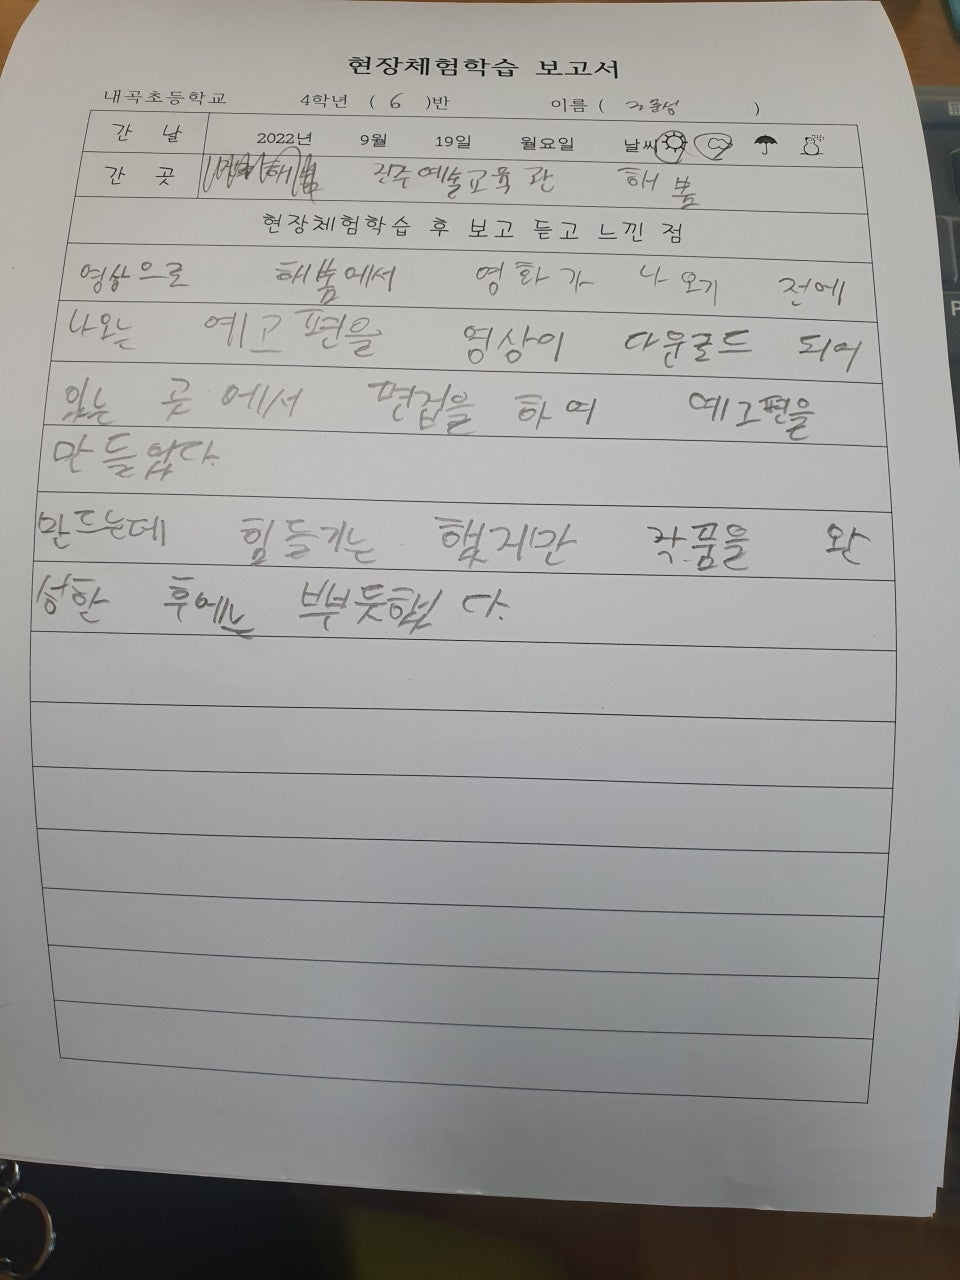 현장체험학습 보고서
내곡초등학교 4학년 ( 6 )반 이름 ( )
간 날 2022년 9월 19일 월요일 날씨
간 곳 진주예술교육관 해봄
현장체험학습 후 보고 듣고 느낀 점
영상으로 해봄에서 영화가 나오기 전에
나오는 예고편을 영상이 다운로드 되어
있는 곳에서 면접을 하여 예고편을
만들었다.
만드는데 힘들기는 했지만 작품을 완
성한 후에는 뿌듯했다.